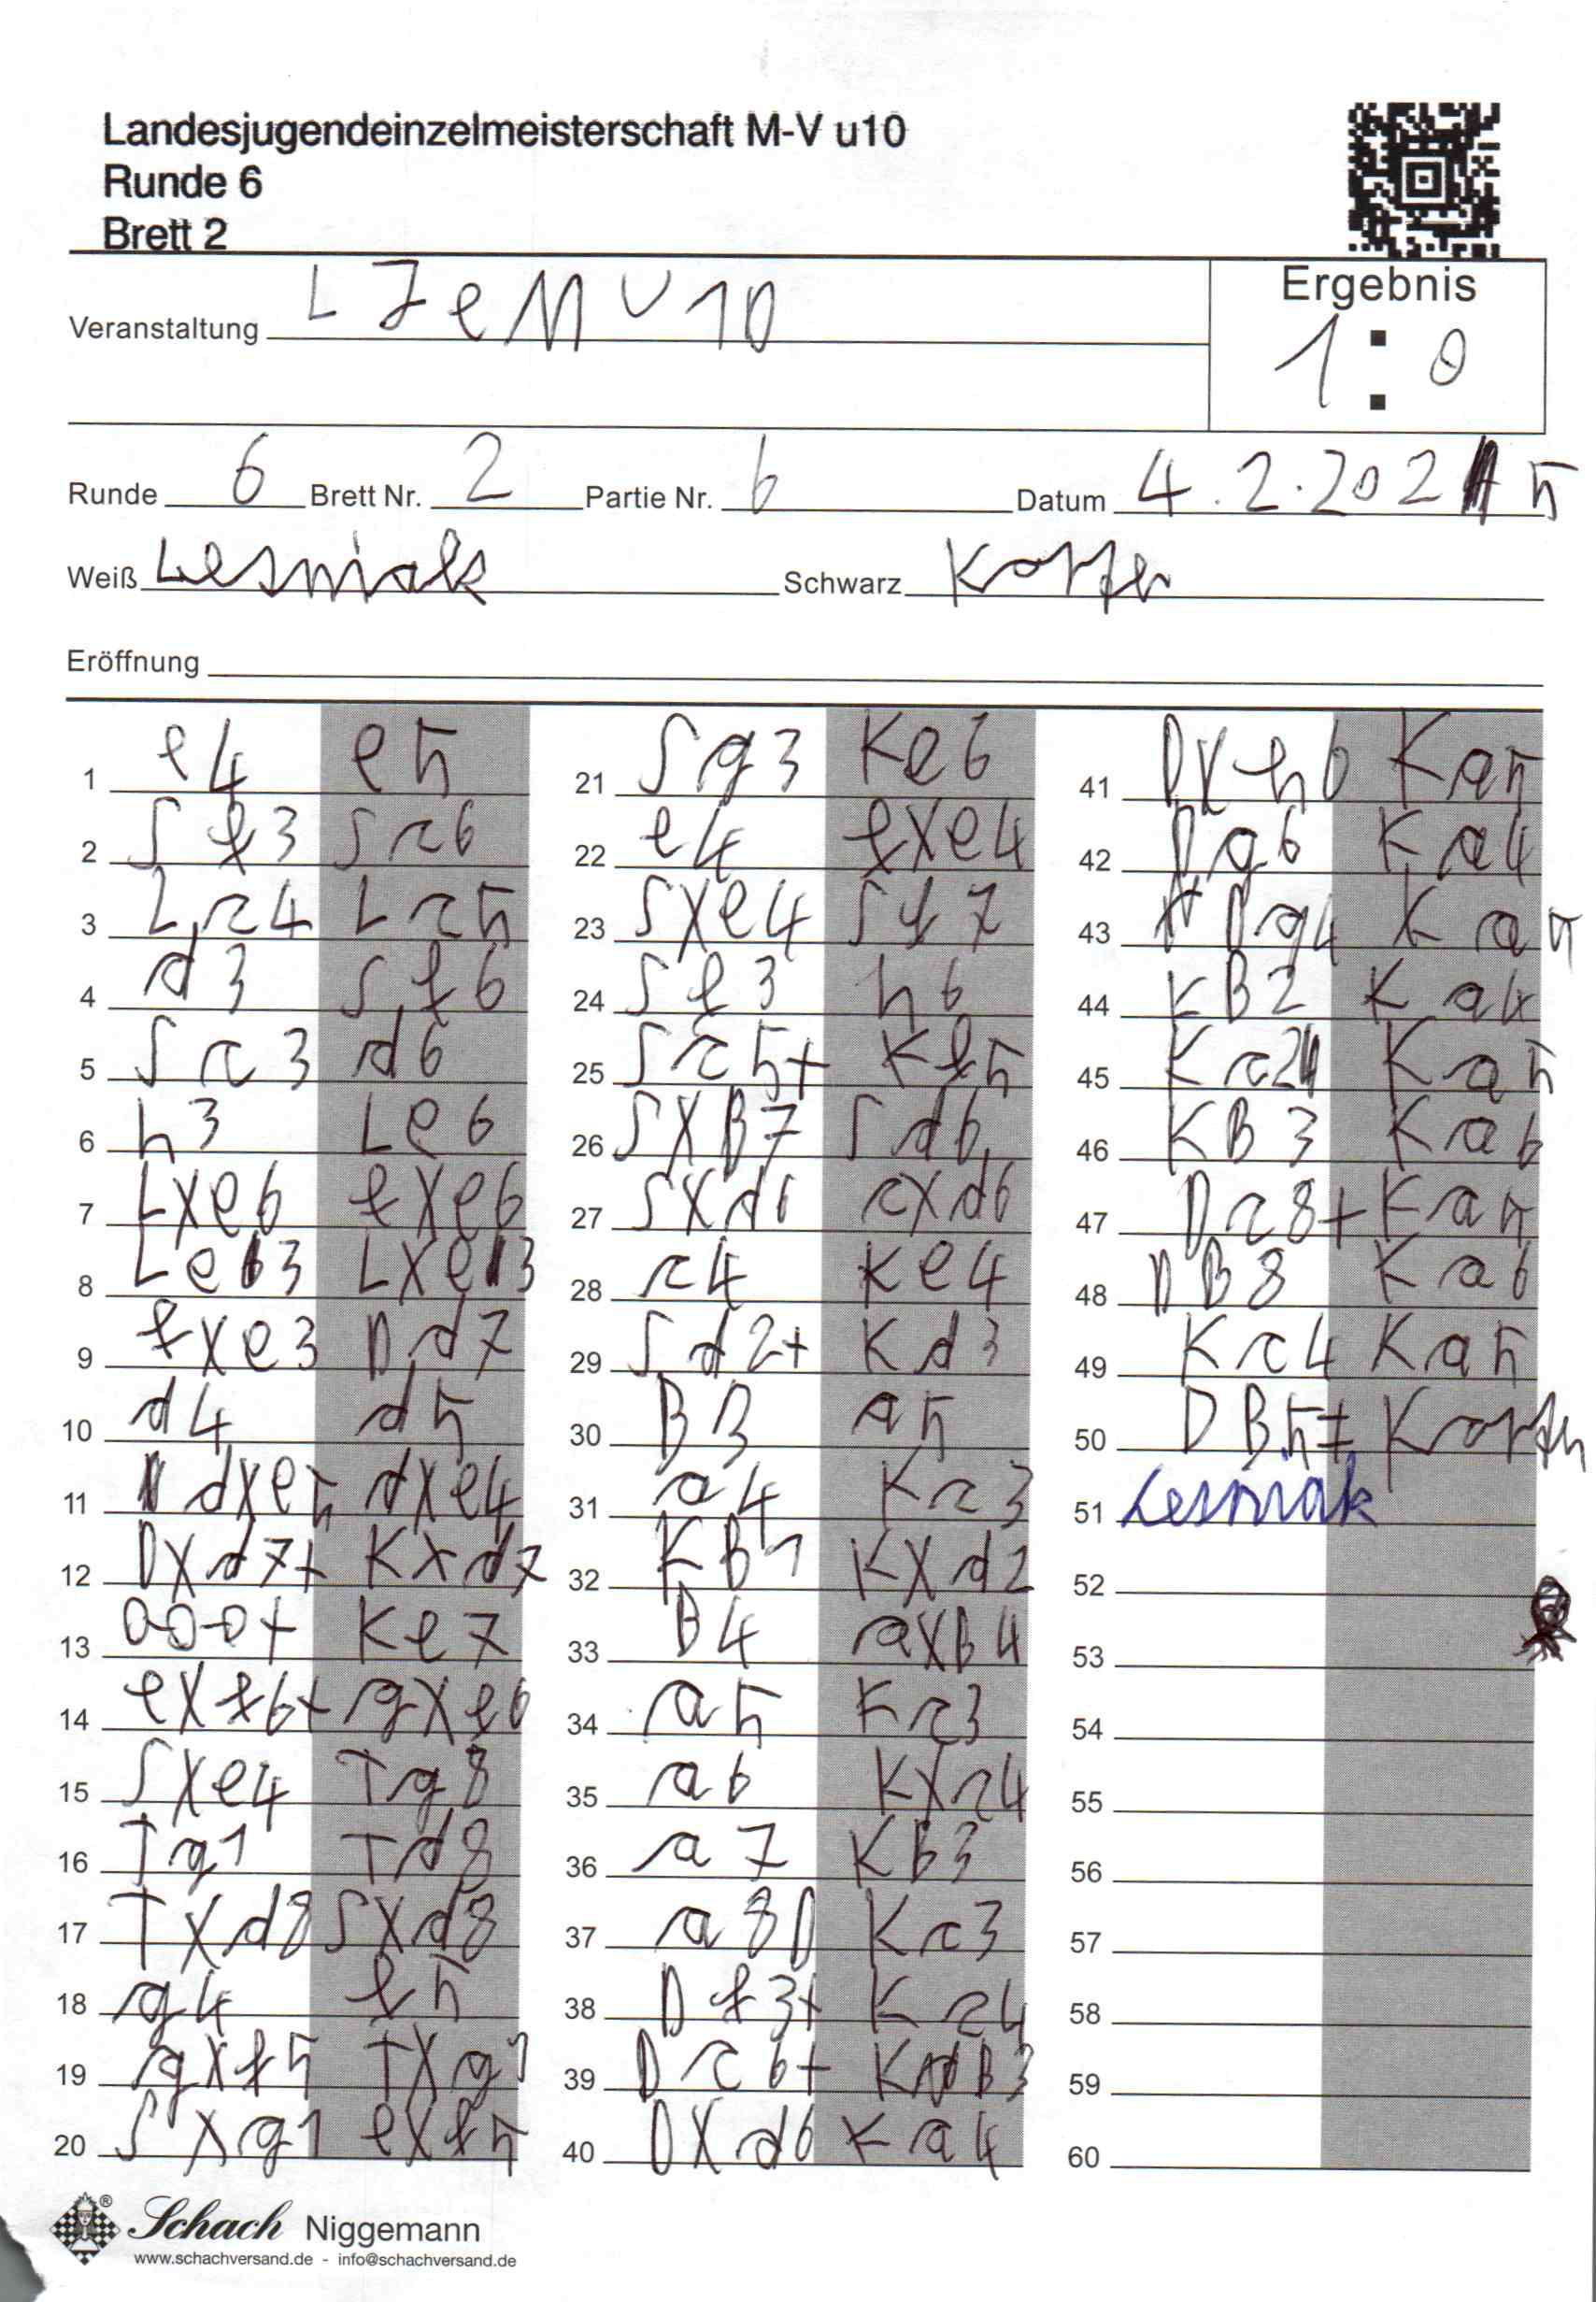 Landesjugendeinzelmeisterschaft M-V u10
Runde 6
Brett 2
Veranstaltung LJeM U10
Ergebnis
1 : 0
Runde 6 Brett Nr. 2 Partie Nr. 6 Datum 4.2.2025
Weiß Lesniak Schwarz
Eröffnung
1 e4 e5
2 Sf3 Sc6
3 Lc4 Lc5
4 d3 Sf6
5 Sc3 d6
6 h3 Le6
7 Lxe6 fxe6
8 Le3 Lxe3
9 fxe3 Dd7
10 d4 d5
11 dxe5 dxe4
12 Dxd7+ Kxd7
13 0-0-0+ Ke7
14 exf6+ gxf6
15 Sxe4 Tg8
16 Tg1 Td8
17 Txd8 Sxd8
18 g4 f5
19 gxf5 Txg1
20 Sxg1 exf5
21 Sg3 Ke6
22 e4 fxe4
23 Sxe4 Sf7
24 Sf3 h6
25 Sc5+ Kf5
26 SxB7 Sd6
27 Sxd6 cxd6
28 c4 Ke4
29 Sd2+ Kd3
30 B3 a5
31 a4 Kc3
32 KB1 Kxd2
33 B4 axB4
34 a5 Kc3
35 a6 Kxc4
36 a7 KB3
37 a8D Kc3
38 Df3+ Kc4
39 Dc6+ KB3
40 Dxd6 Ka4
41 Dxh6 Ka5
42 Dg6 Ka4
43 Dg4 Ka5
44 KB2 Ka4
45 Kc2 Ka5
46 KB3 Ka6
47 Dc8+ Ka5
48 DB8 Ka6
49 Kc4 Ka5
50 DB5‡
51 Lesniak
52
53
54
55
56
57
58
59
60
Schach Niggemann
www.schachversand.de - info@schachversand.de